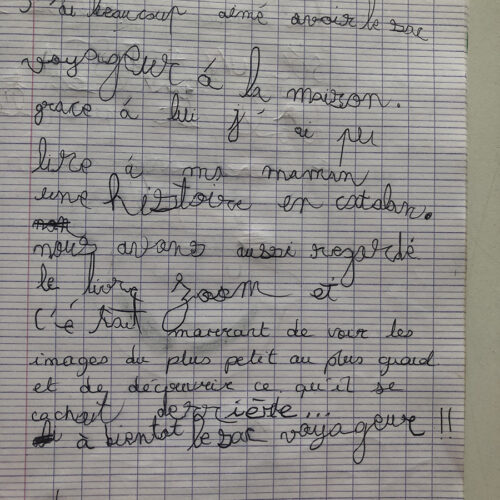 J'ai beaucoup aimé avoir le sac
voyageur à la maison.
grace à lui j'ai pu
lire à ma maman
une histoire en catalan.
nous avons aussi regardé
le livre zoom et
C'é tait marrant de voir les
images du plus petit au plus grand
et de découvrir ce qu'il se
cachait derrière...
à bientot le sac voyageur !!